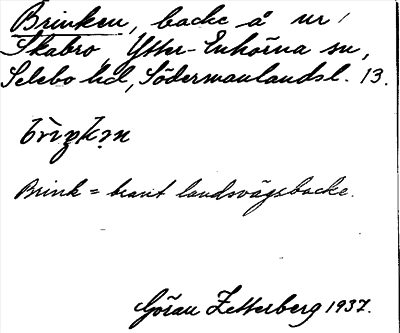 Brinken, backe å nr 1
Skabro, Ytter-Enhörna sn,
Selebo hd, Södermanlandsl. 13.
Brink = brant landsvägsbacke.
Göran Zetterberg 1937.